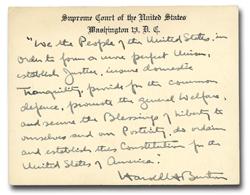 Supreme Court of the United States
Washington 13, D. C.
"We the People of the United States, in
order to form a more perfect Union,
establish Justice, insure domestic
Tranquility, provide for the common
defence, promote the general Welfare,
and secure the Blessings of Liberty to
ourselves and our Posterity, do ordain
and establish this Constitution for the
United States of America."
Harold H. Burton